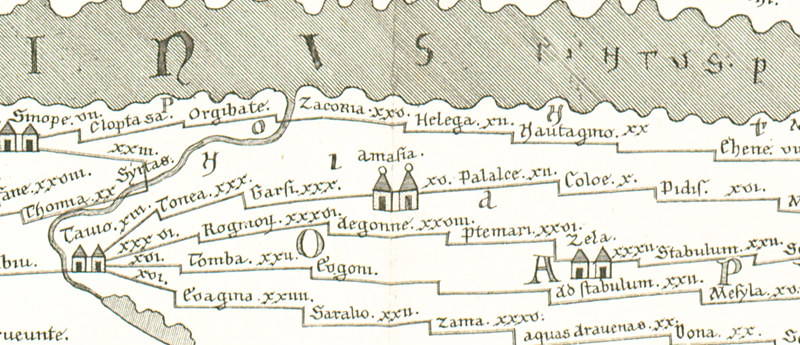 I N V S P O N T V S . P
Sinope. vii. Cloptasa. P Orgibate. Zacoria. xxv. Helega. xii. H Hautagino. xx
Chene. vii
O
xxiii. Syrtas. H I amasia.
ane. xxviii. Thomia. xx
xv. Palalce. xii. Coloe. x. Pidis. xvi.
d
Tauio. xiii. Tonea. xxx. Garsi. xxx.
xxxvi. Rogmon. xxxvi. degonne. xxviii. Ptemari. xxvi. Zela. xxxii. Stabulum. xxii.
xvi. Tomba. xxii. O Eugoni. A ad stabulum. xxii. P Mesyla. xv
xvi. Evagina. xxiiii. Saralio. xxii. Zama. xxxv. aquas dravenas. xx. Dona. xx.
rueunte.